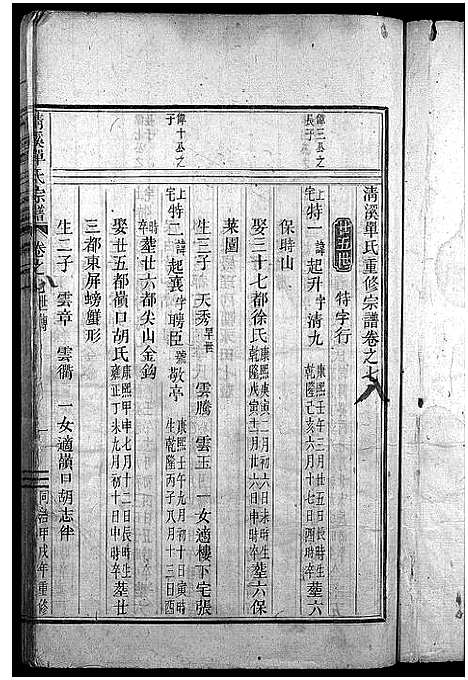 清溪單氏重修宗譜卷之七八
廿五世 特字行
偉三公之長子
上宅 特一 諱起升 字清九 康熙壬午三月廿五日辰時生 乾隆己亥六月十七日酉時卒 葬六
保時山
娶三十七都徐氏 康熙庚寅二月初六日未時生 乾隆戊寅十二月廿六日申時卒 葬六保
菜園
生三子 天秀早世 雲騰 雲玉 一女適樓下宅張
偉十公之子
上宅 特二 諱起襄 字聘臣 號敬亭 康熙壬午九月初十日寅時生 乾隆丙子八月十三日酉
時卒 葬廿六都尖山金鈎
娶廿五都嶺口胡氏 康熙甲申七月十二日長時生 雍正丁未九月初十日申時卒 葬廿
三都東屏螃蟹形
生二子 雲章 雲衢 一女適嶺口胡志伴
清溪單氏宗譜 卷之八 世傳 同治甲戌年重修